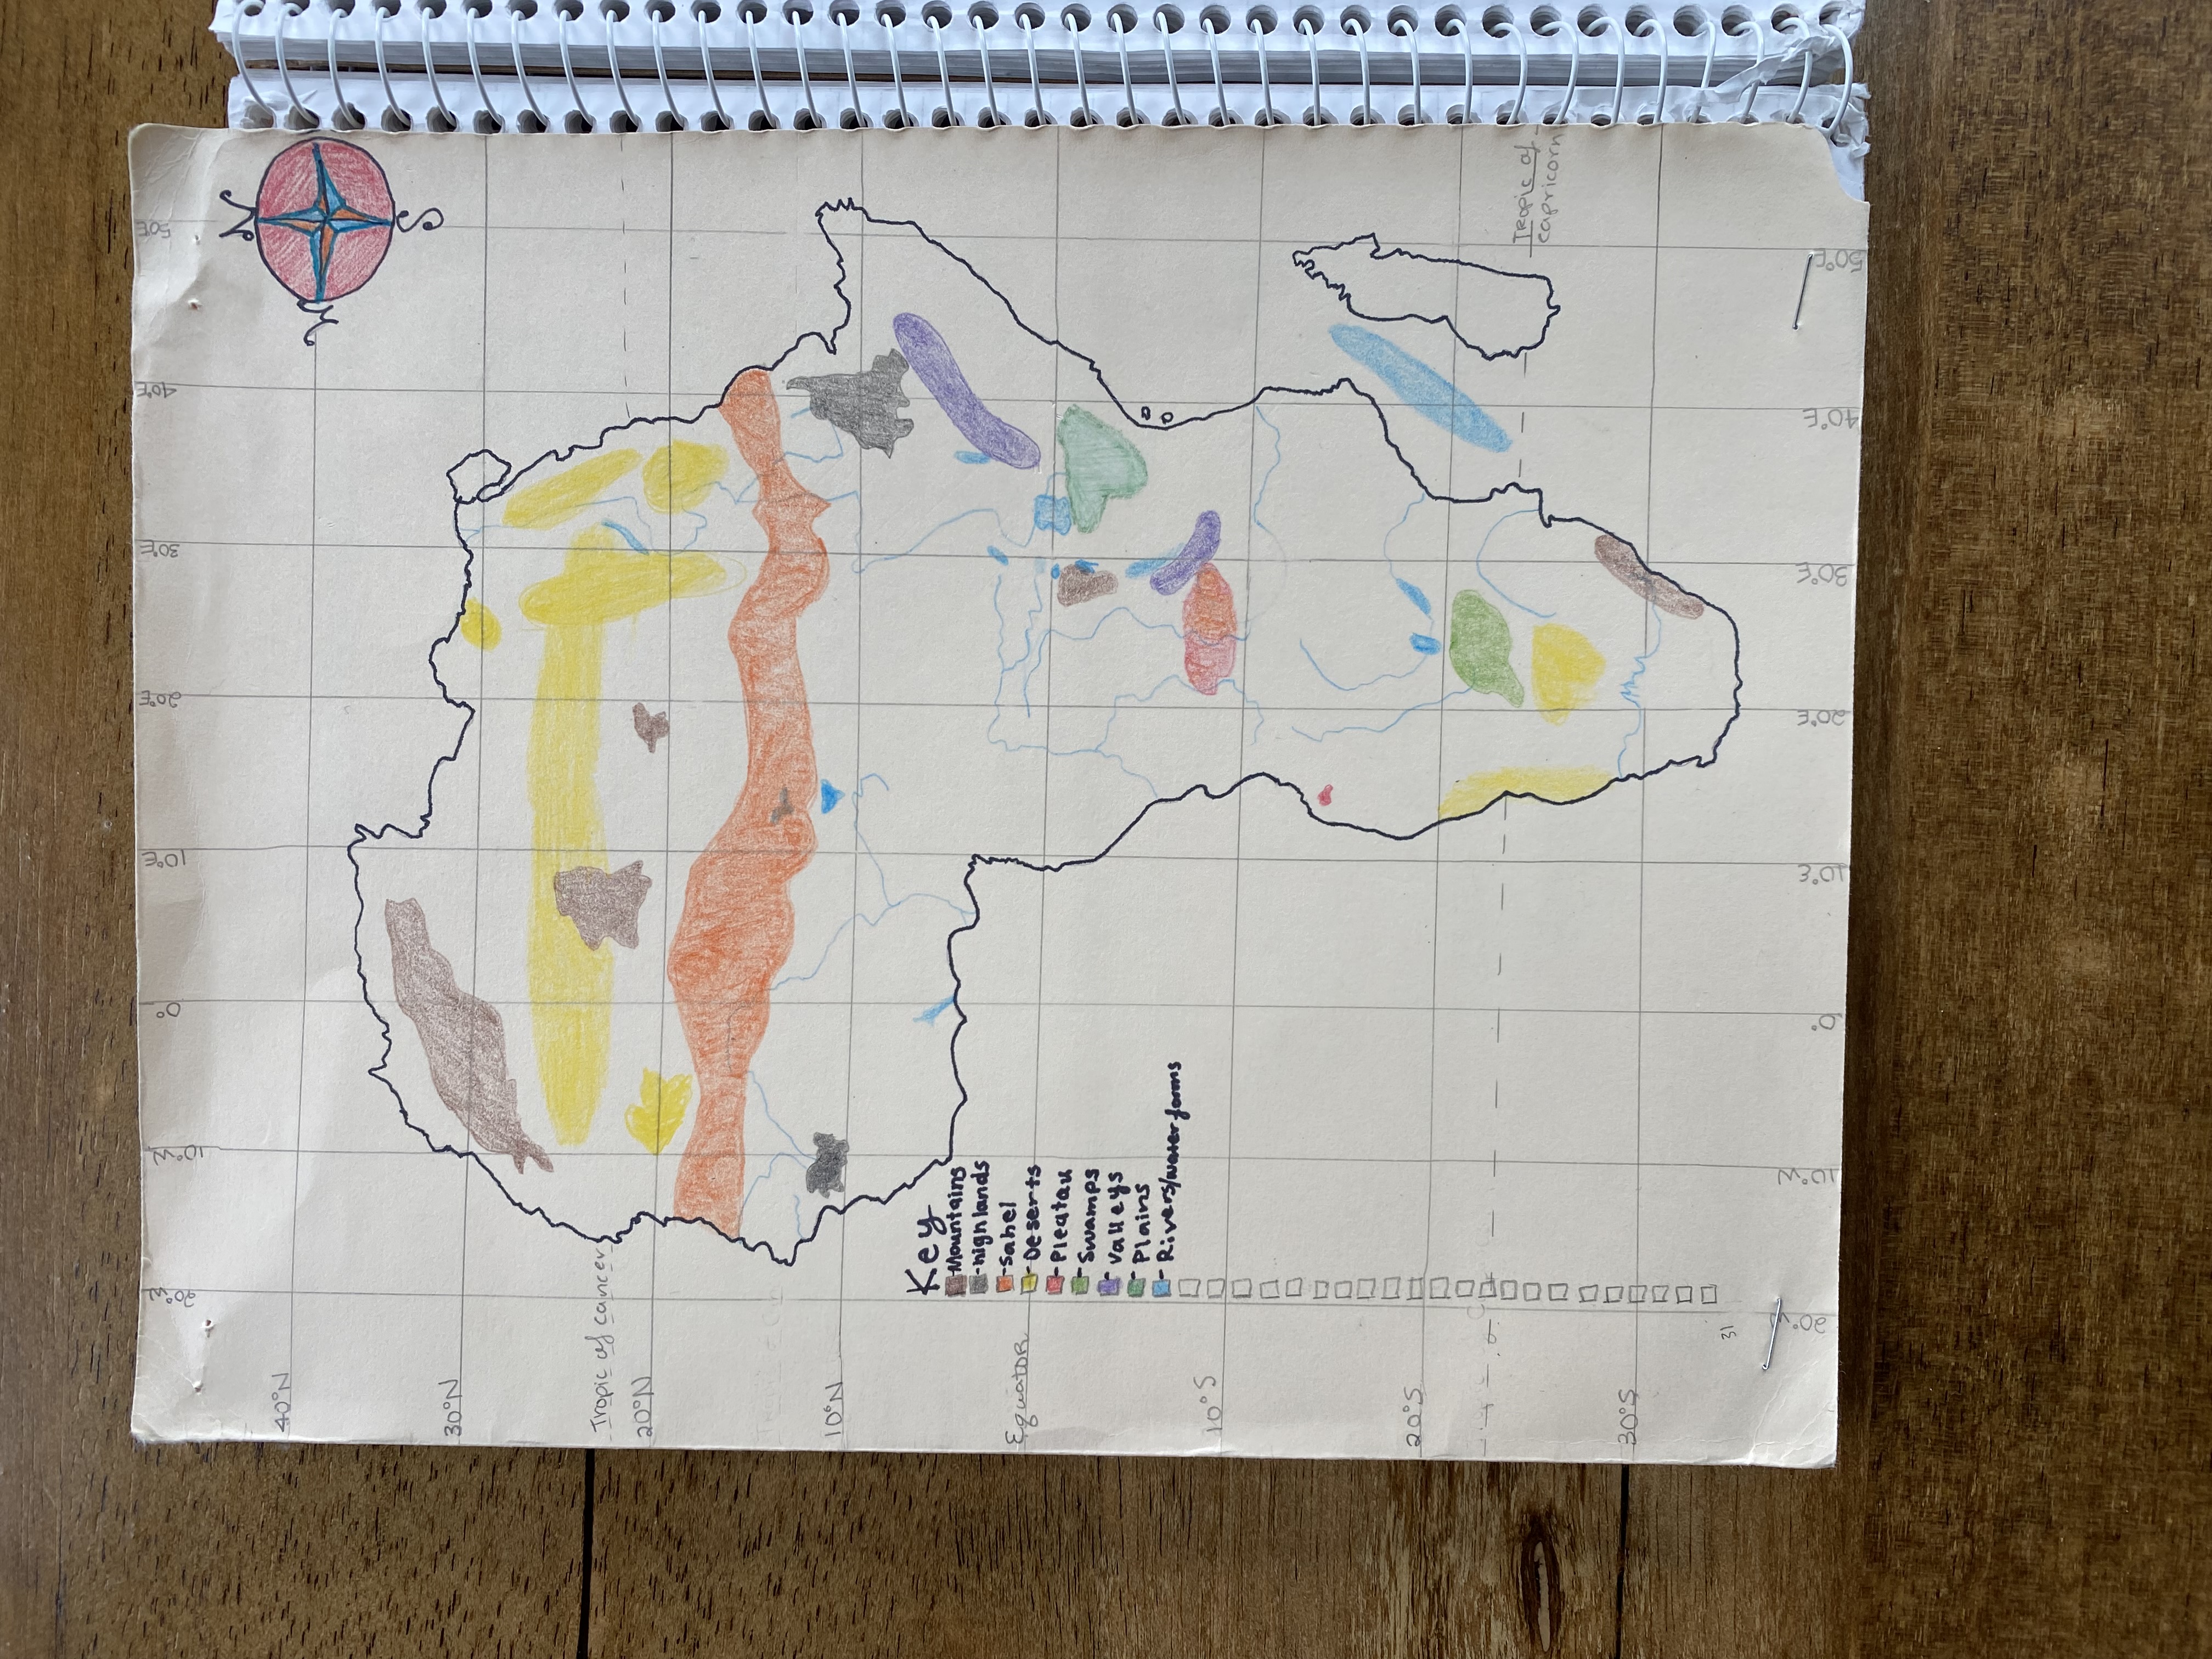 20°W 10°W 0° 10°E 20°E 30°E 40°E 50E
N
W
S
40°N
30°N
Tropic of cancer
20°N
10°N
Key
Mountains
highlands
Sahel
Equator
Deserts
Pleatau
Swamps
Valleys
Plains
Rivers/water forms
10°S
20°S
Tropic of
capricorn
30°S
31
20°W 10°W 0° 10°E 20°E 30°E 40°E 50°E